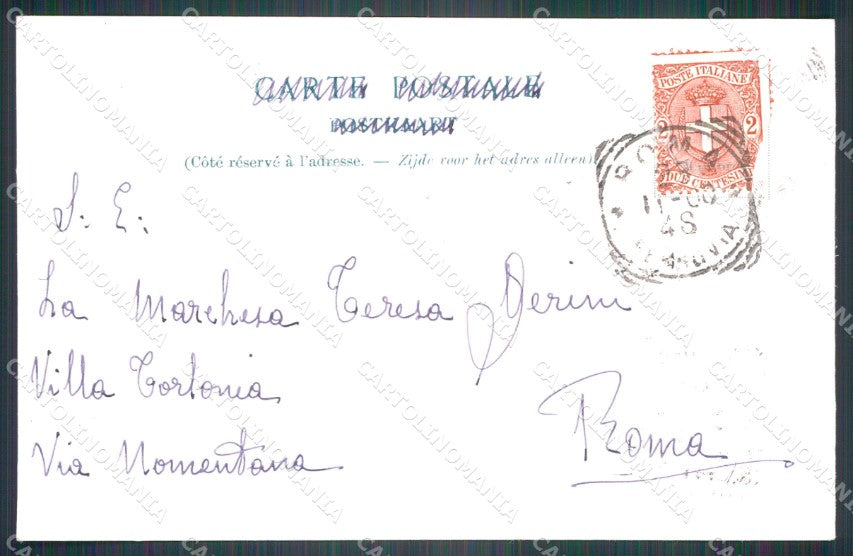 CARTE POSTALE
POSTKAART
(Côté réservé à l'adresse. — Zijde voor het adres alleen)
POSTE ITALIANE
2 2
DUE CENTESIMI
ROMA
11-00
4S
S. E.
La Marchesa Teresa Derini
Villa Tortonia
Via Nomentana
Roma
CARTOLINOMANIA